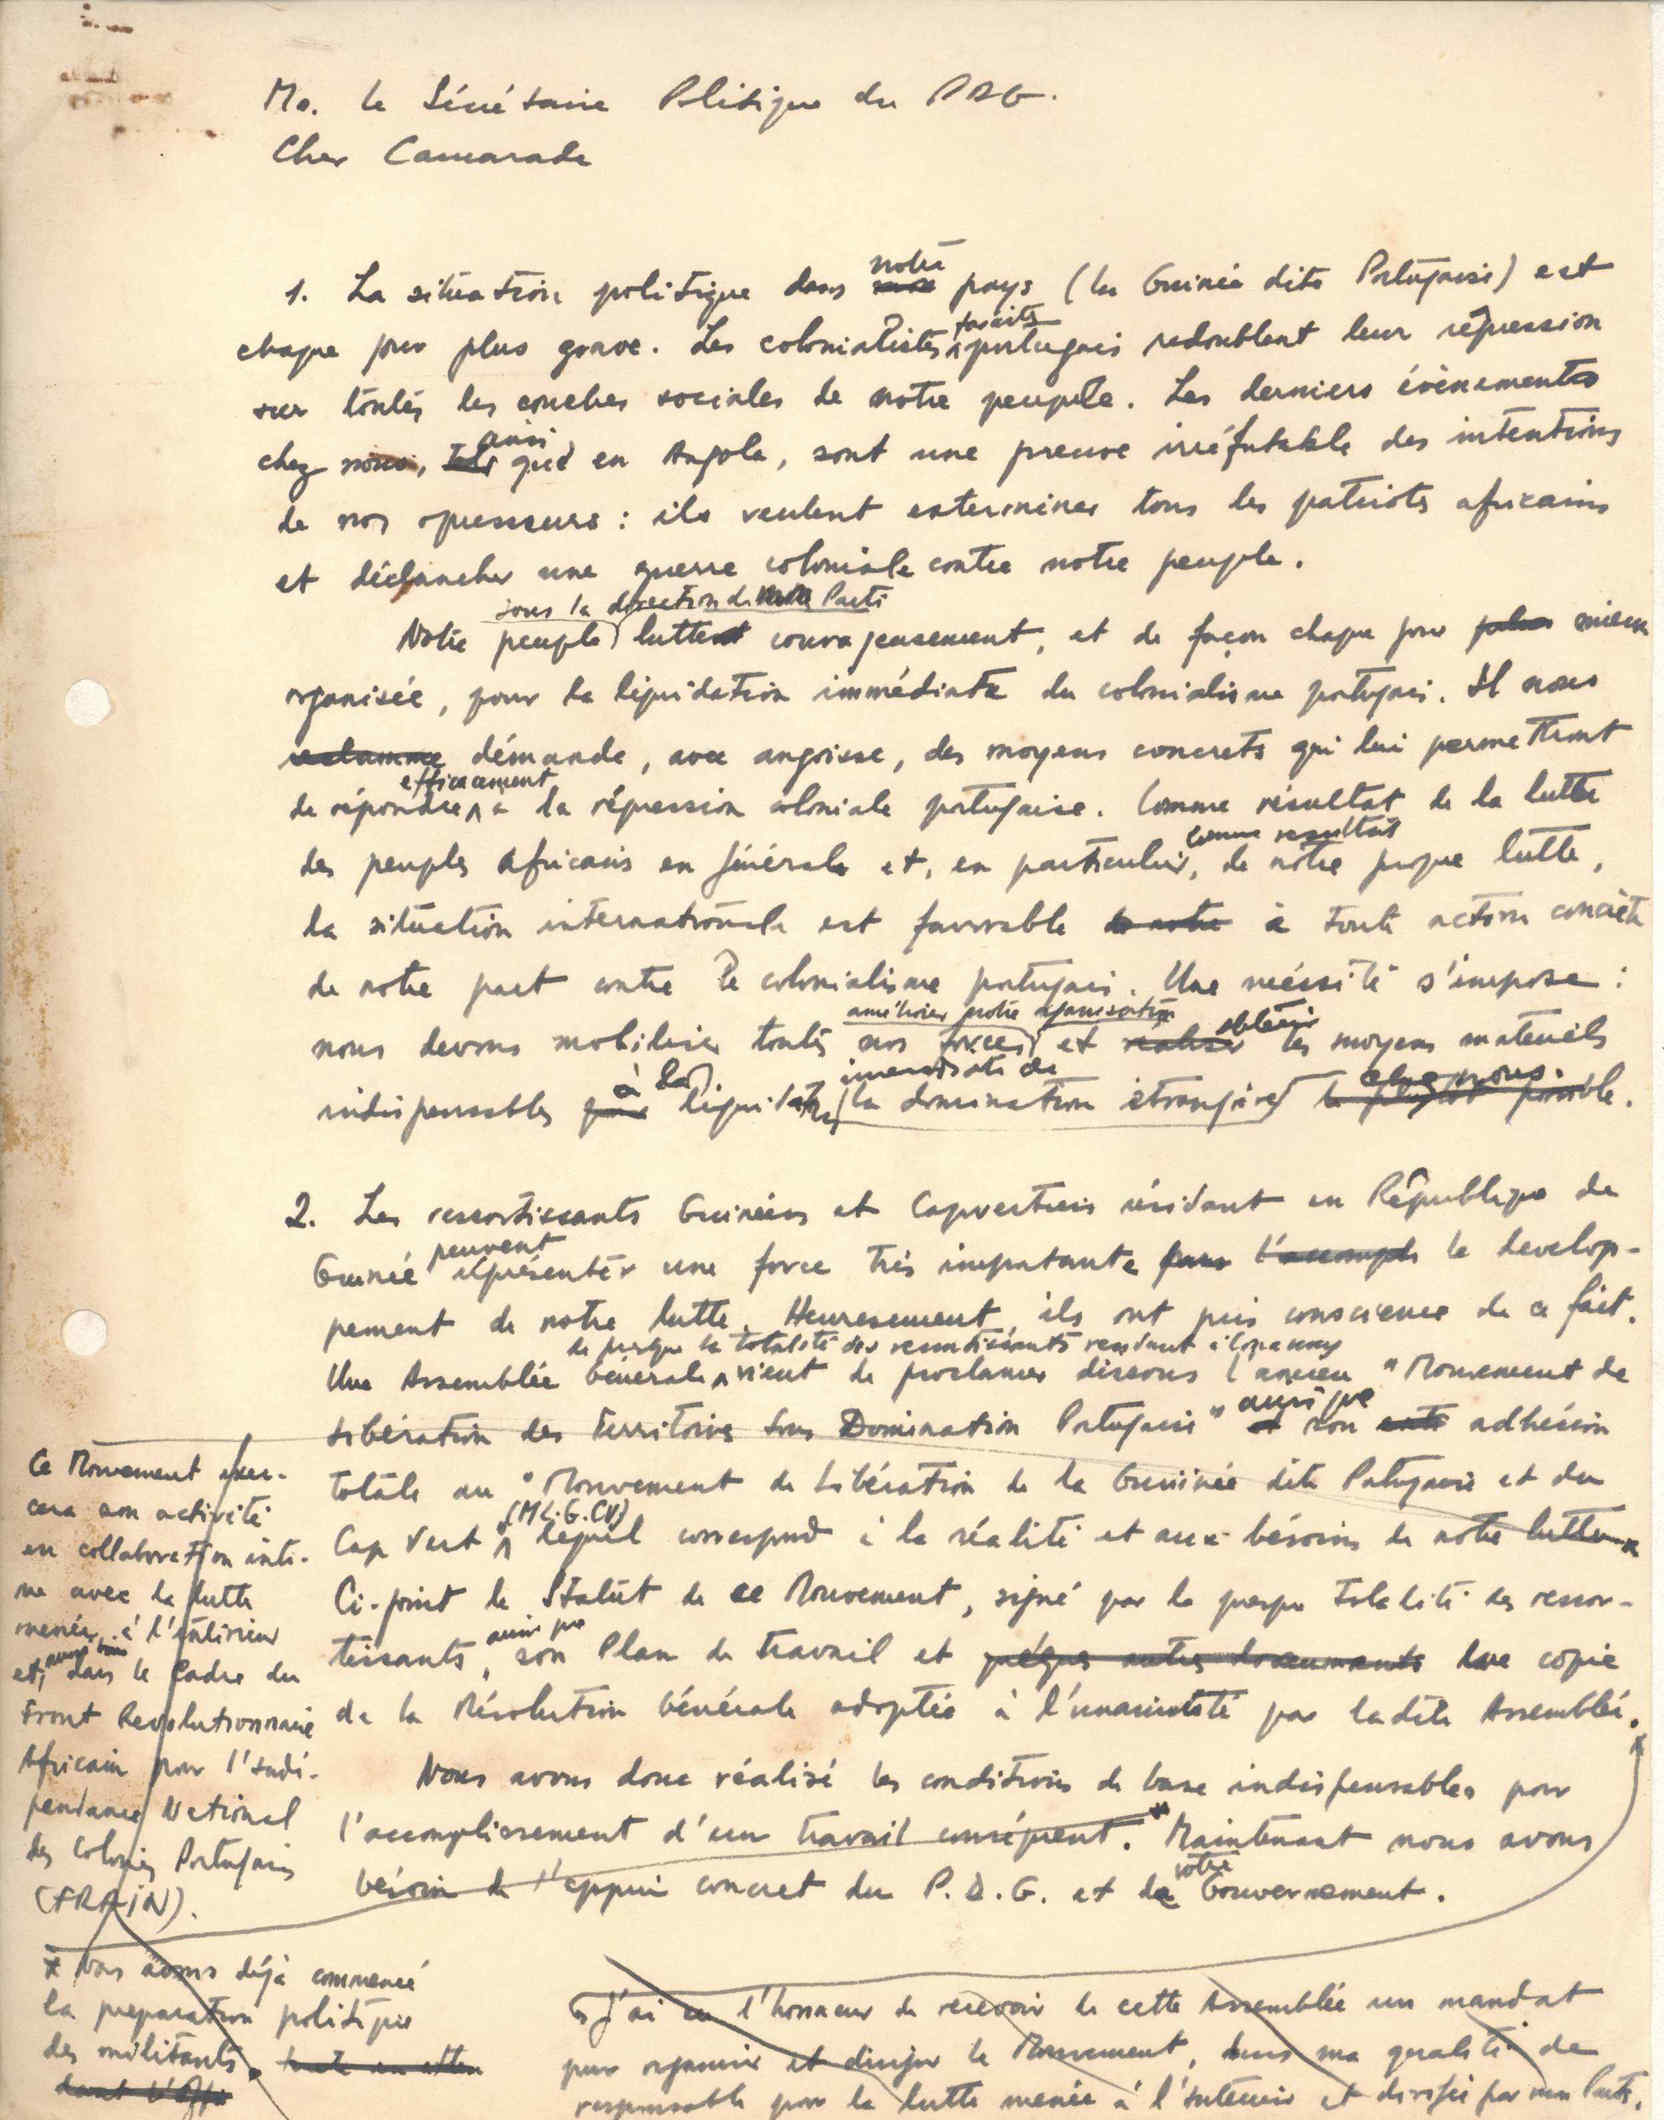 Mo. le Sécrétaire Politique du PDG.
Cher Camarade
notre
1. La situation politique dans pays (la Guinée dite Portugaise) est
fascistes
chaque jour plus grave. Les colonialistes portugais redoublent leur répression
sur toutes les couches sociales de notre peuple. Les derniers évènements
ainsi
chez nous, que en Angola, sont une preuve irréfutable des intentions
de nos opresseurs : ils veulent exterminer tous les patriotes africains
et déclancher une guerre coloniale contre notre peuple.
sous la direction de Parti
Notre peuple lutte courageusement, et de façon chaque jour plus mieux
organisée, pour la liquidation immédiate du colonialisme portugais. Il nous
reclamme démande, avec angoisse, des moyens concrets qui lui permettront
efficacement
de répondre à la répression coloniale portugaise. Comme résultat de la lutte
comme resultat
des peuples africains en générale et, en particulier, de notre propre lutte,
la situation internationale est favorable de notre à toute action concrète
de notre part contre le colonialisme portugais. Une nécéssité s'impose :
améliorer notre organisation
obtenir
nous devons mobiliser toutes nos forces et realiser les moyens materiels
à la
immédiate de
chez nous.
indispensables pour liquidation la domination étrangère le plus tôt possible.
2. Les ressortissants Guinéens et Capverdiens résidant en République de
peuvent
Guinée représenter une force très importante pour l'accompli le develop-
pement de notre lutte. Heuresement, ils ont pris conscience de ce fait.
de presque la totalité des ressortissants residant à Conakry
Une Assemblée Générale vient de proclamer dissous l'ancien "Mouvement de
ainsi que
Libération des Territoires Sous Domination Portugaise" et son adhésion
totale au "Mouvement de Libération de la Guinée dite Portugaise et du
(MLGCV)
Cap Vert lequel correspond à la réalité et aux bésoins de notre lutte
Ci-joint le Statut de ce Mouvement, signé par la presque totalité des ressor-
ainsi que
tissants, son Plan de travail et quelques autres documents une copie
de la Résolution Générale adoptée à l'unanimité par ladite Assemblée.
Nous avons donc réalisé les conditions de base indispensables pour
l'accomplissement d'un travail conséquent.* Maintenant nous avons
votre
bésoin de l'appui concret du P.D.G. et de Gouvernement.
Ce Mouvement exer-
cera son activité
en collaboration inti-
me avec la lutte
menée à l'intérieur
et, aussi bien
dans le Cadre du
Front Revolutionnaire
Africain pour l'Indé-
pendance National
des Colonies Portugaises
(FRAIN).
* Nous avons déjà commencé
la preparation politique
des militants.
J'ai eu l'honneur de recevoir de cette Assemblée un mandat
pour organiser et diriger le Mouvement, dans ma qualité de
responsable pour la lutte menée à l'intérieur et dirigée par mon Parti.